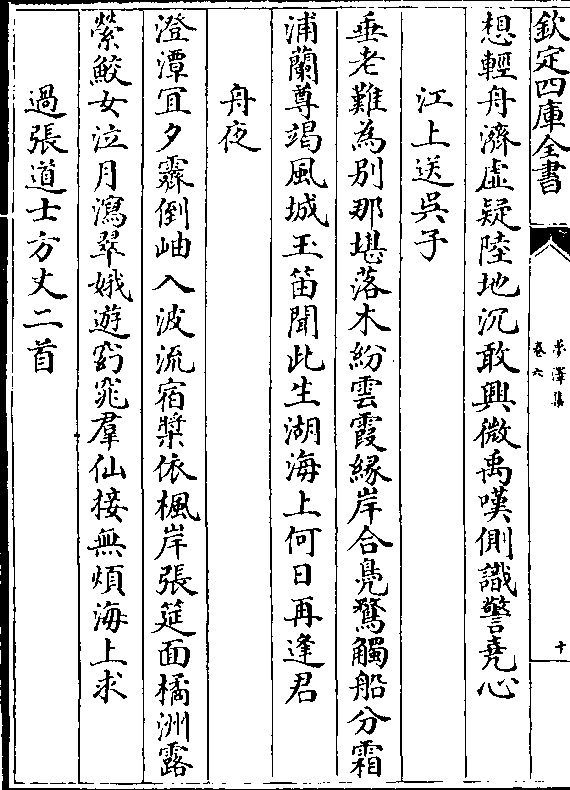 欽定四庫全書
夢澤集
卷六
十
想輕舟濟虛疑陸地沉敢興微禹嘆側識警堯心
江上送吳子
垂老難為別那堪落木紛雲霞緣岸合鳧鶩觸船分霜
浦蘭尊竭風城玉笛聞此生湖海上何日再逢君
舟夜
澄潭冝夕霽倒岫入波流宿槳依楓岸張筵面橘洲露
縈鮫女泣月瀉翠娥遊窈窕羣仙接無煩海上求
過張道士方丈二首